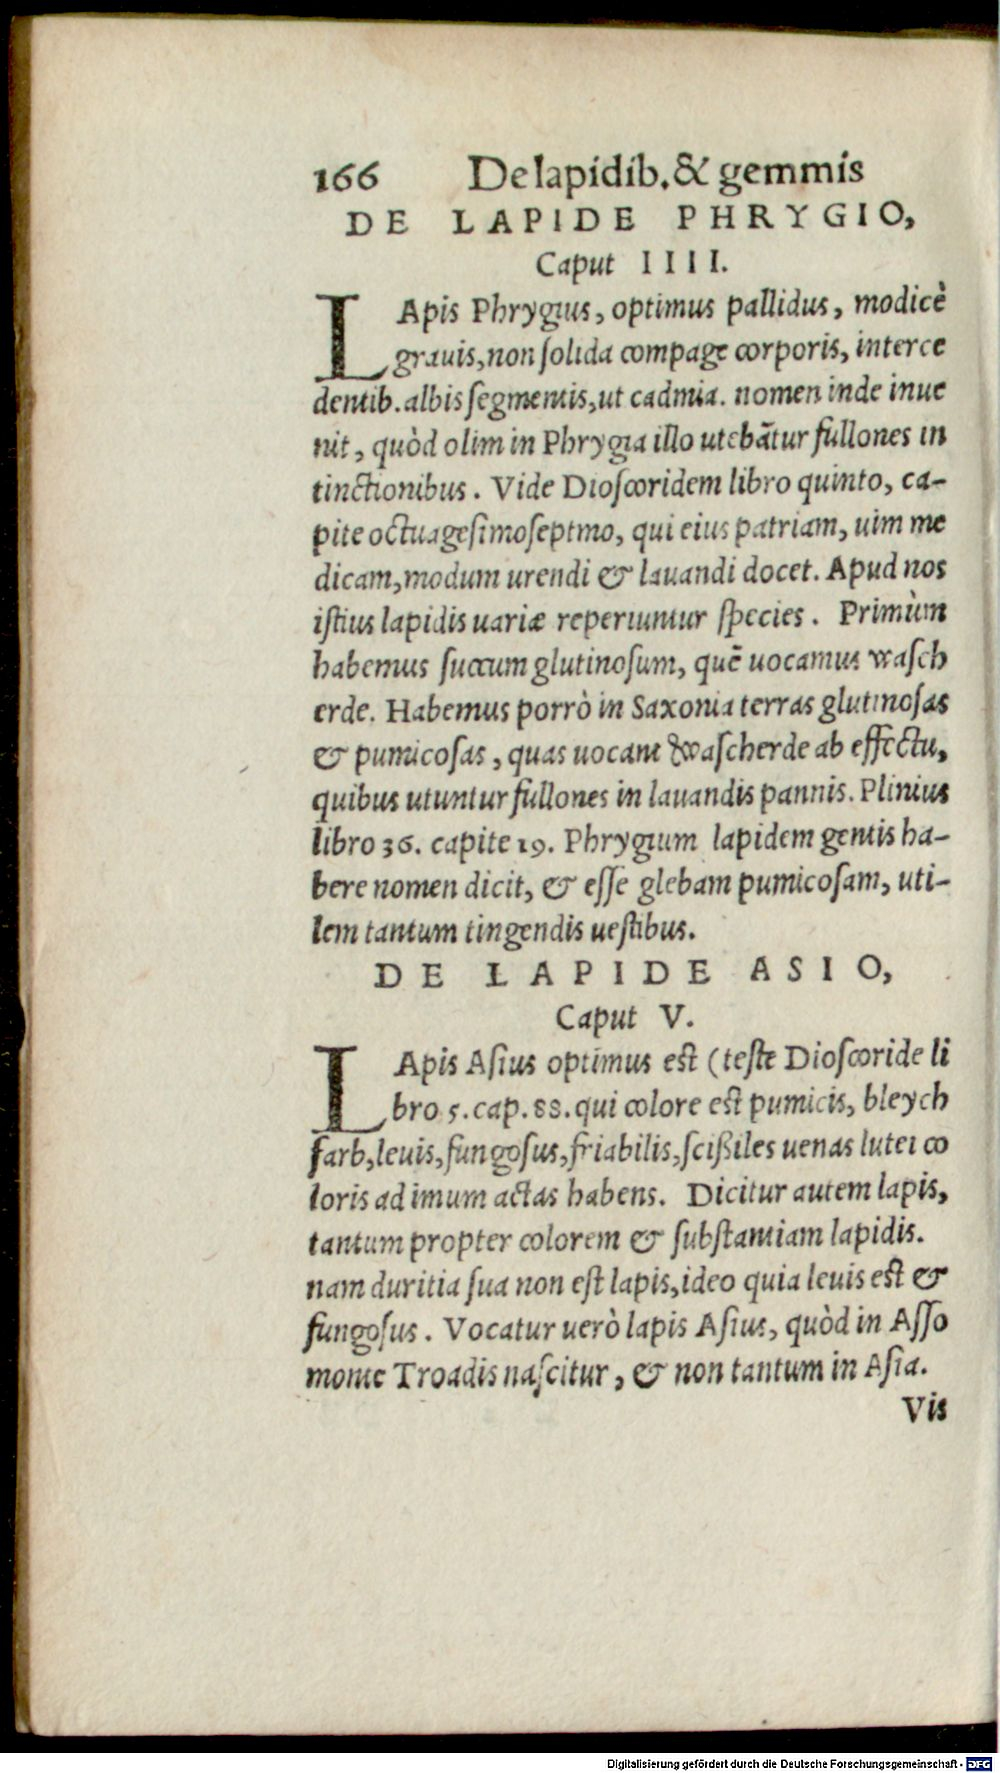 166 De lapidib. & gemmis
DE LAPIDE PHRYGIO,
Caput IIII.
LApis Phrygius, optimus pallidus, modicè
grauis, non solida compage corporis, interce
dentib. albis segmentis, ut cadmia. nomen inde inue
nit, quòd olim in Phrygia illo utebãtur fullones in
tinctionibus. Vide Dioscoridem libro quinto, ca-
pite octuagesimoseptmo, qui eius patriam, uim me
dicam, modum urendi & lauandi docet. Apud nos
istius lapidis uariæ reperiuntur species. Primùm
habemus succum glutinosum, quẽ uocamus wasch
erde. Habemus porrò in Saxonia terras glutinosas
& pumicosas, quas uocant Wascherde ab effectu,
quibus utuntur fullones in lauandis pannis. Plinius
libro 36. capite 19. Phrygium lapidem gentis ha-
bere nomen dicit, & esse glebam pumicosam, uti-
lem tantum tingendis uestibus.
DE LAPIDE ASIO,
Caput V.
LApis Asius optimus est (teste Dioscoride li
bro 5. cap. 88. qui colore est pumicis, bleych
farb, leuis, fungosus, friabilis, scißiles uenas lutei co
loris ad imum actas habens. Dicitur autem lapis,
tantum propter colorem & substantiam lapidis.
nam duritia sua non est lapis, ideo quia leuis est &
fungosus. Vocatur uerò lapis Asius, quòd in Asso
monte Troadis nascitur, & non tantum in Asia.
Vis
Digitalisierung gefördert durch die Deutsche Forschungsgemeinschaft - DFG